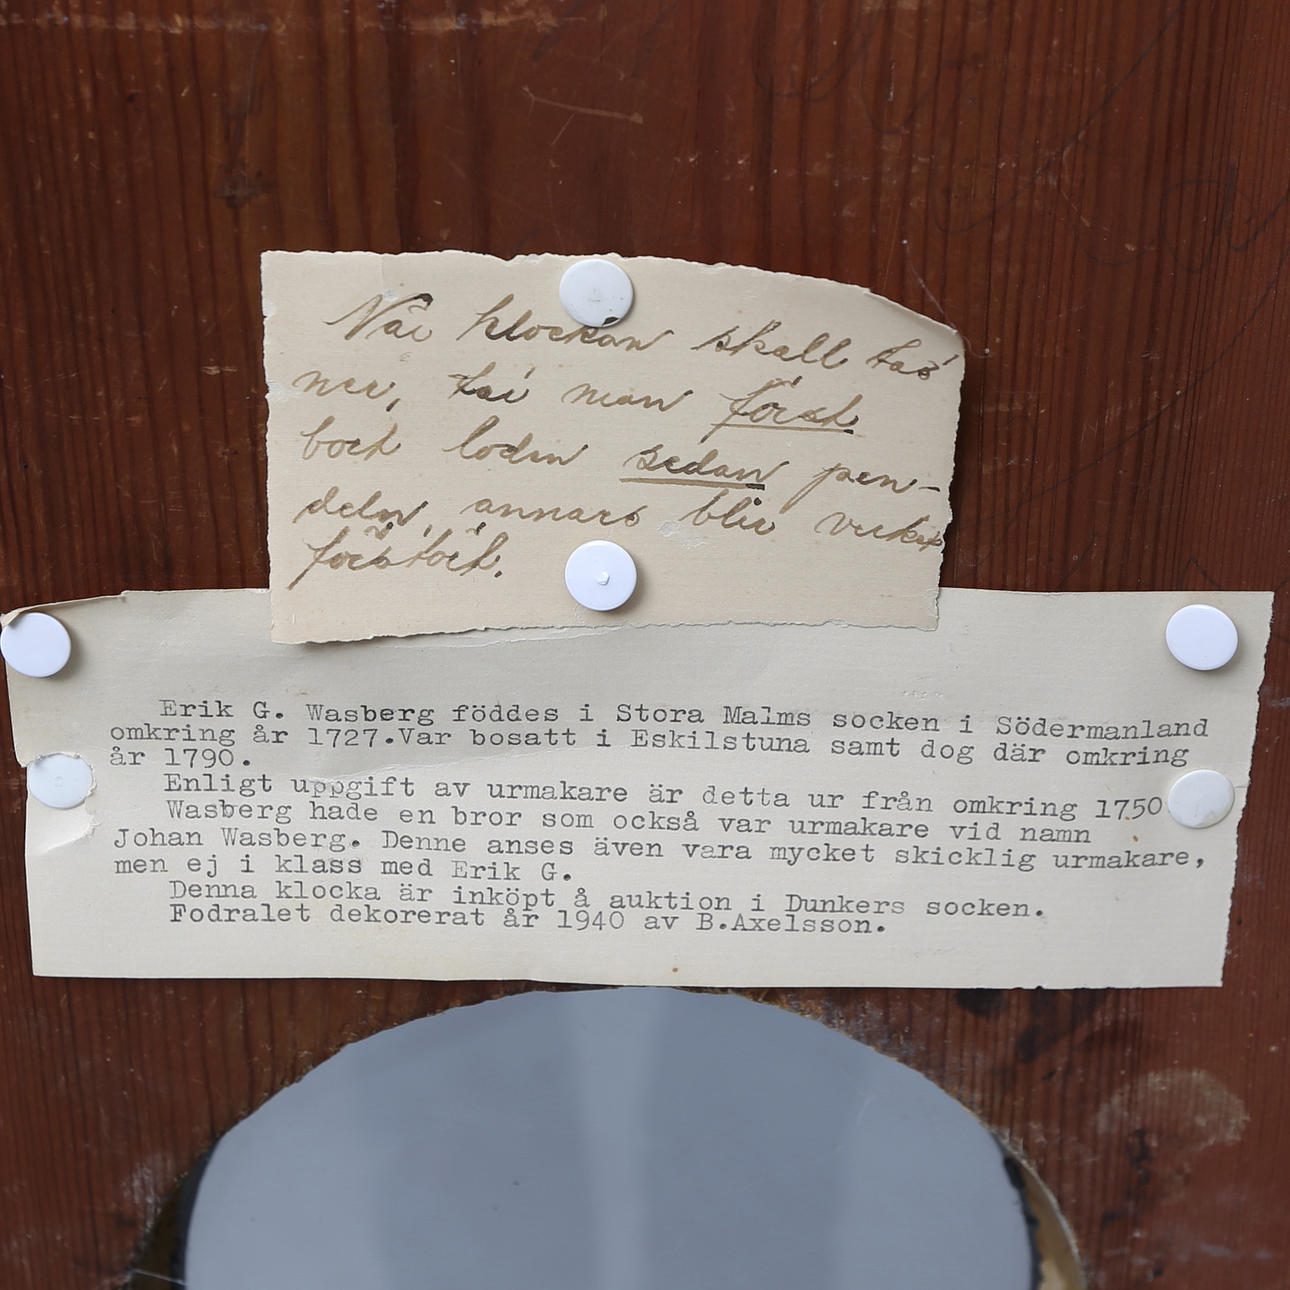 När klockan skall tas
ner, tar man först
bort loden sedan pen-
deln, annars blir verket
förstört.
Erik G. Wasberg föddes i Stora Malms socken i Södermanland
omkring år 1727.Var bosatt i Eskilstuna samt dog där omkring
år 1790.
Enligt uppgift av urmakare är detta ur från omkring 1750
Wasberg hade en bror som också var urmakare vid namn
Johan Wasberg. Denne anses även vara mycket skicklig urmakare,
men ej i klass med Erik G.
Denna klocka är inköpt å auktion i Dunkers socken.
Fodralet dekorerat år 1940 av B.Axelsson.